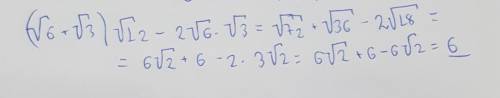 (√6 + √3) √12 - 2√6 · √3 = √72 + √36 - 2√18 =
= 6√2 + 6 - 2 · 3√2 = 6√2 + 6 - 6√2 = 6